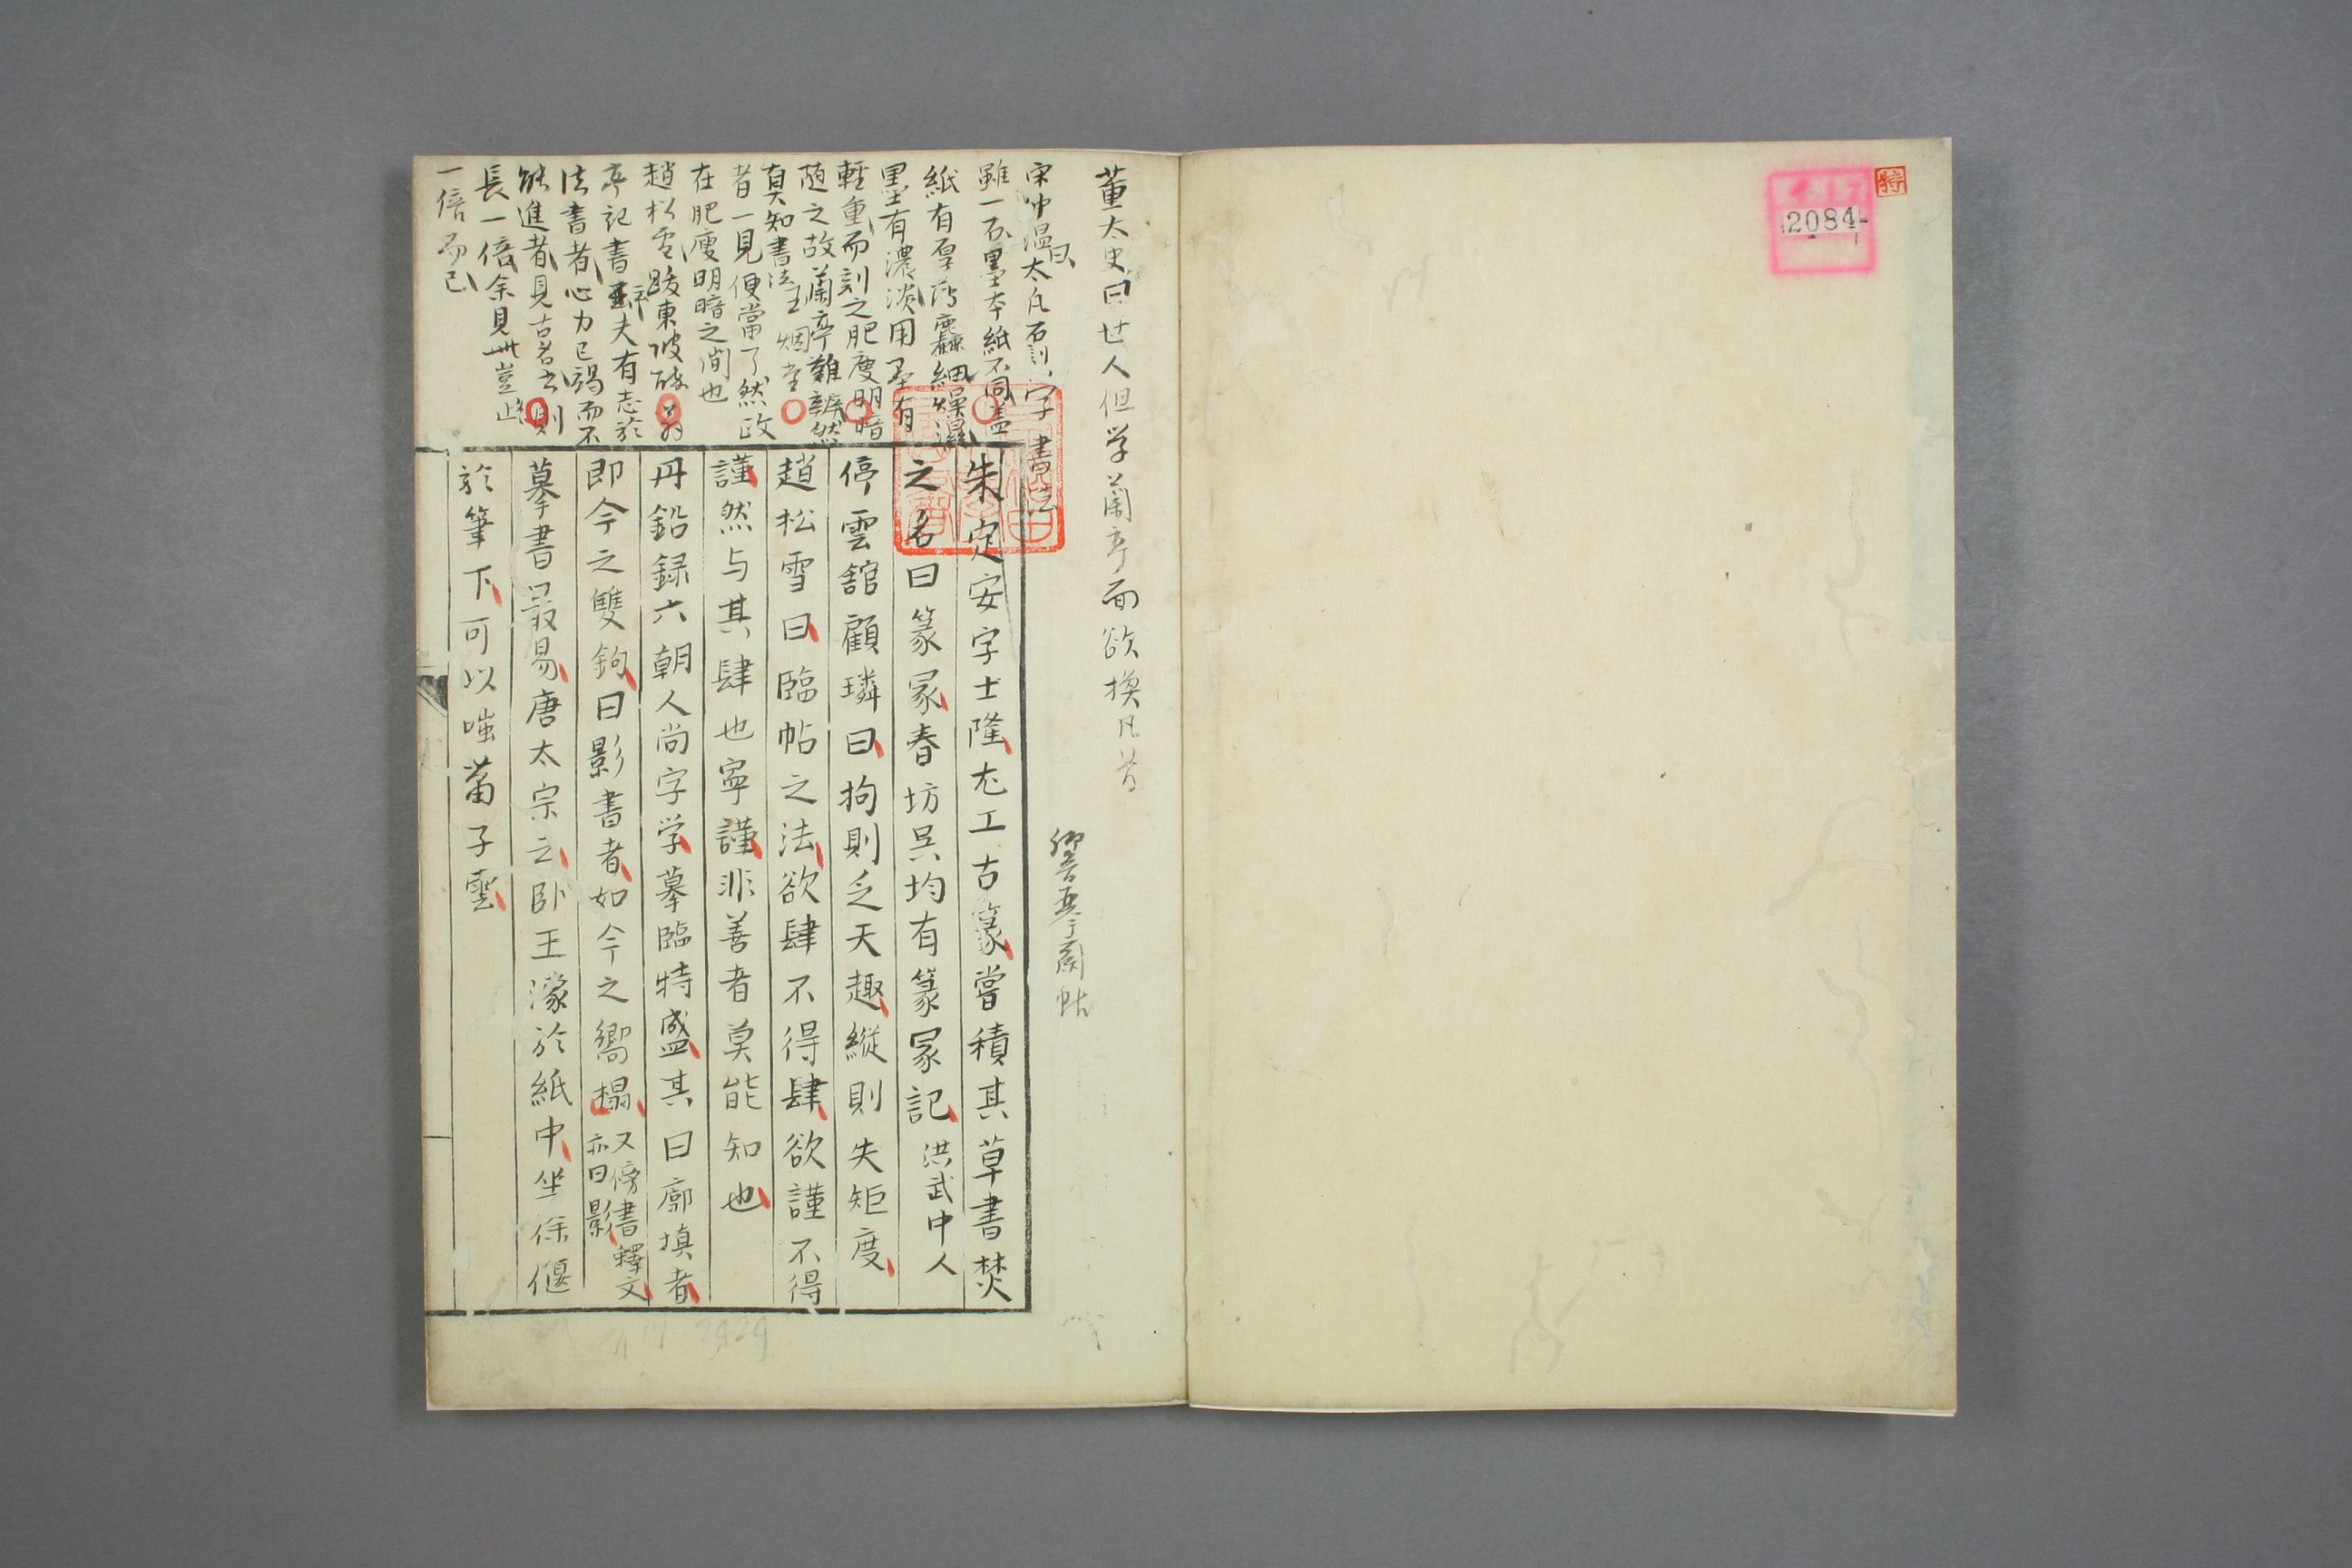 特
2084
董太史曰世人但学蘭亭面欲換凡骨
宋仲温曰太凡石刻
雖一石墨本紙不同蓋
紙有厚薄麤細燥濕
墨有濃淡用墨有
輕重而刻之肥瘦明暗
随之故蘭亭難辨然
真知書法
者一見便當了然政
在肥瘦明暗之間也
趙松雪跋東坡醉翁
亭記書
夫有志於
法書者心力已竭而不
能進者見古名書則
長一倍余見此豈止
一倍而已
字書法
朱定安字士隆尤工古篆嘗積其草書焚
之名曰篆冢春坊吳均有篆冢記 洪武中人
停雲舘顧璘曰拘則乏天趣縦則失矩度
趙松雪曰臨帖之法欲肆不得肆欲謹不得
謹然与其肆也寧謹非善者莫能知也
丹鉛録六朝人尚字学摹臨特盛其曰廓填者
即今之雙鉤曰影書者如今之嚮搨 又傍書釋文亦曰影
摹書最易唐太宗云卧王濛於紙中坐徐偃
於筆下可以嗤蕭子雲